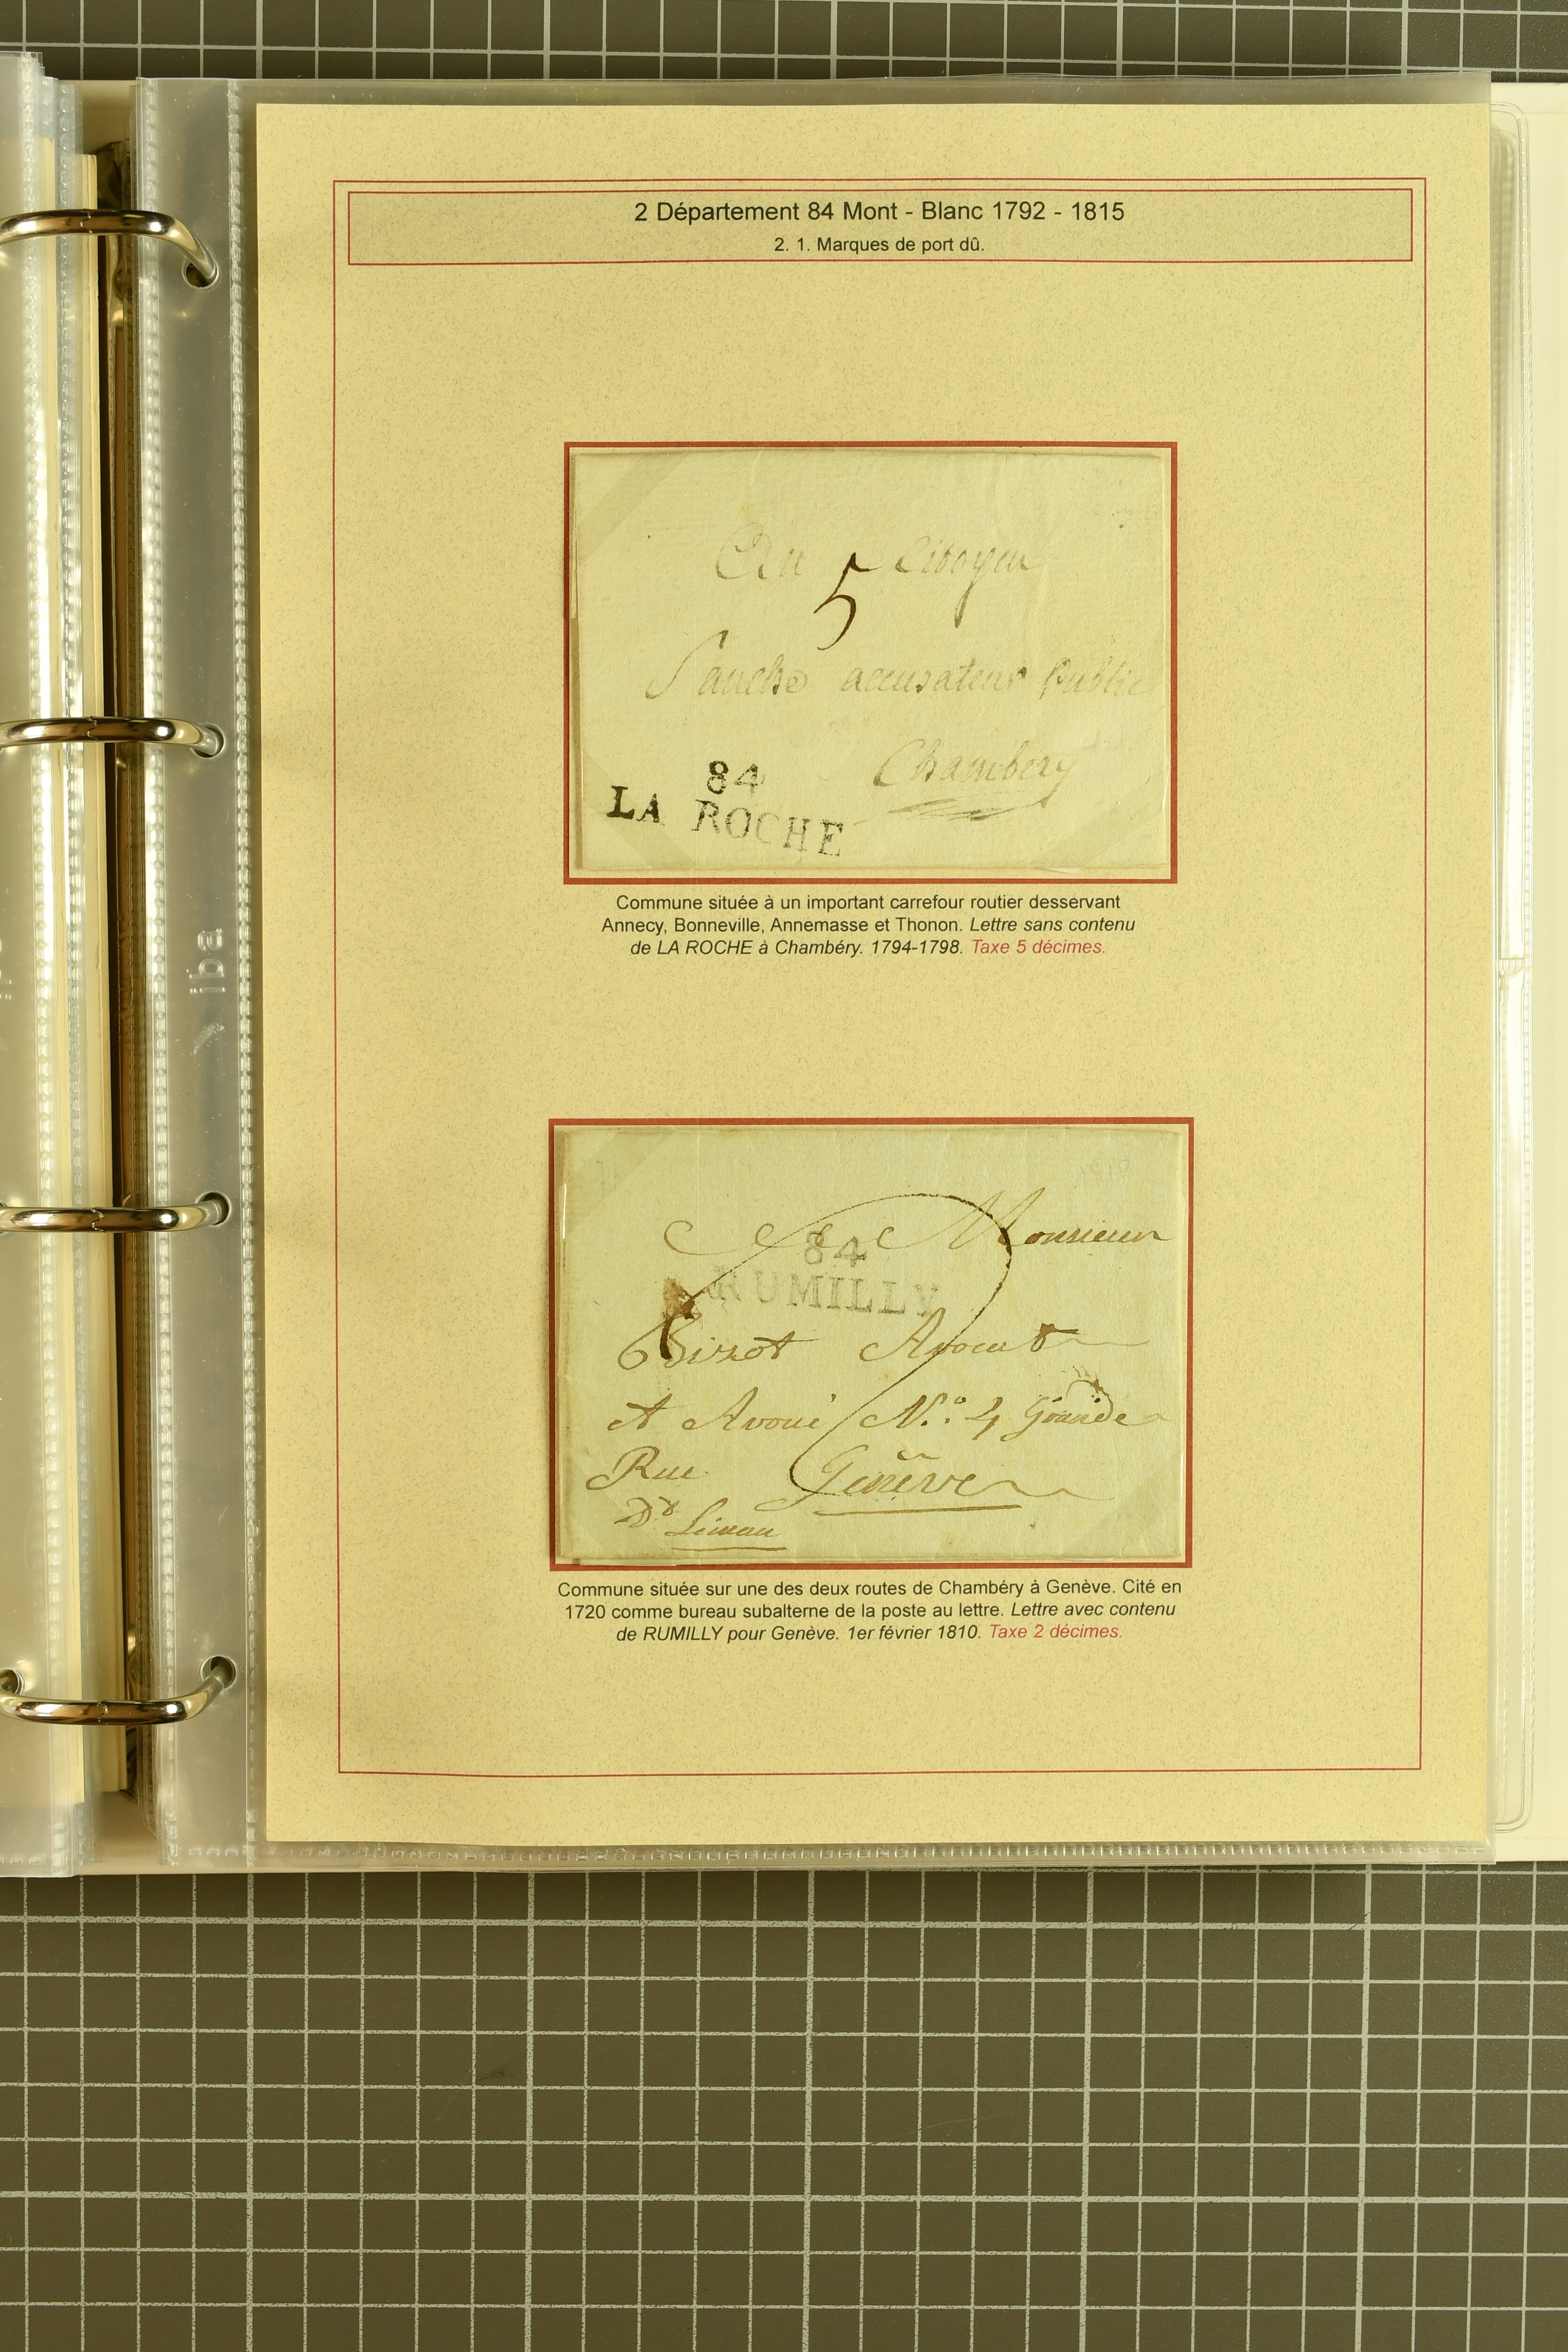 2 Département 84 Mont - Blanc 1792 - 1815
2. 1. Marques de port dû.
Au Citoyen
5
accusateur Public
Chambery
84
LA ROCHE
Commune située à un important carrefour routier desservant
Annecy, Bonneville, Annemasse et Thonon. Lettre sans contenu
de LA ROCHE à Chambéry. 1794-1798. Taxe 5 décimes.
A Monsieur
84
RUMILLY
2
Bizot Avocat
et Avoué N.º 4 Grande
Rue Genève
Dt Leman
Commune située sur une des deux routes de Chambéry à Genève. Cité en
1720 comme bureau subalterne de la poste au lettre. Lettre avec contenu
de RUMILLY pour Genève. 1er février 1810. Taxe 2 décimes.
iba